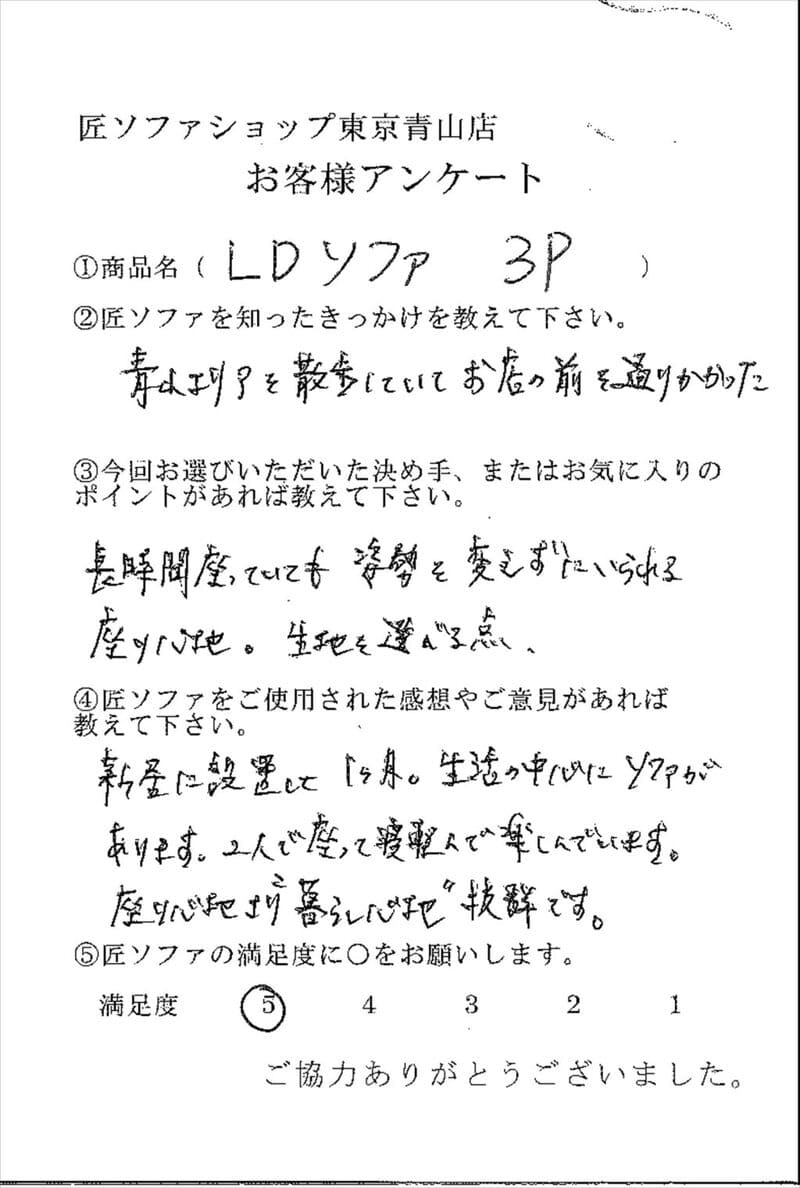 匠ソファショップ東京青山店
お客様アンケート
①商品名（ LDソファ 3P ）
②匠ソファを知ったきっかけを教えて下さい。
青山エリアを散歩していてお店の前を通りかかった
③今回お選びいただいた決め手、またはお気に入りの
ポイントがあれば教えて下さい。
長時間座っていても姿勢を変えずにいられる
座り心地。生地を選べる点、
④匠ソファをご使用された感想やご意見があれば
教えて下さい。
新居に設置して1ヶ月。生活の中心にソファが
あります。2人で座って寝転んで楽しんでいます。
座り心地より"暮らし心地"抜群です。
⑤匠ソファの満足度に〇をお願いします。
満足度 5 4 3 2 1
ご協力ありがとうございました。